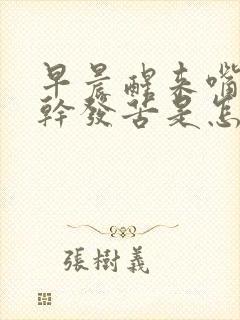 早晨醒来嘴
幹發苦是怎
張樹義